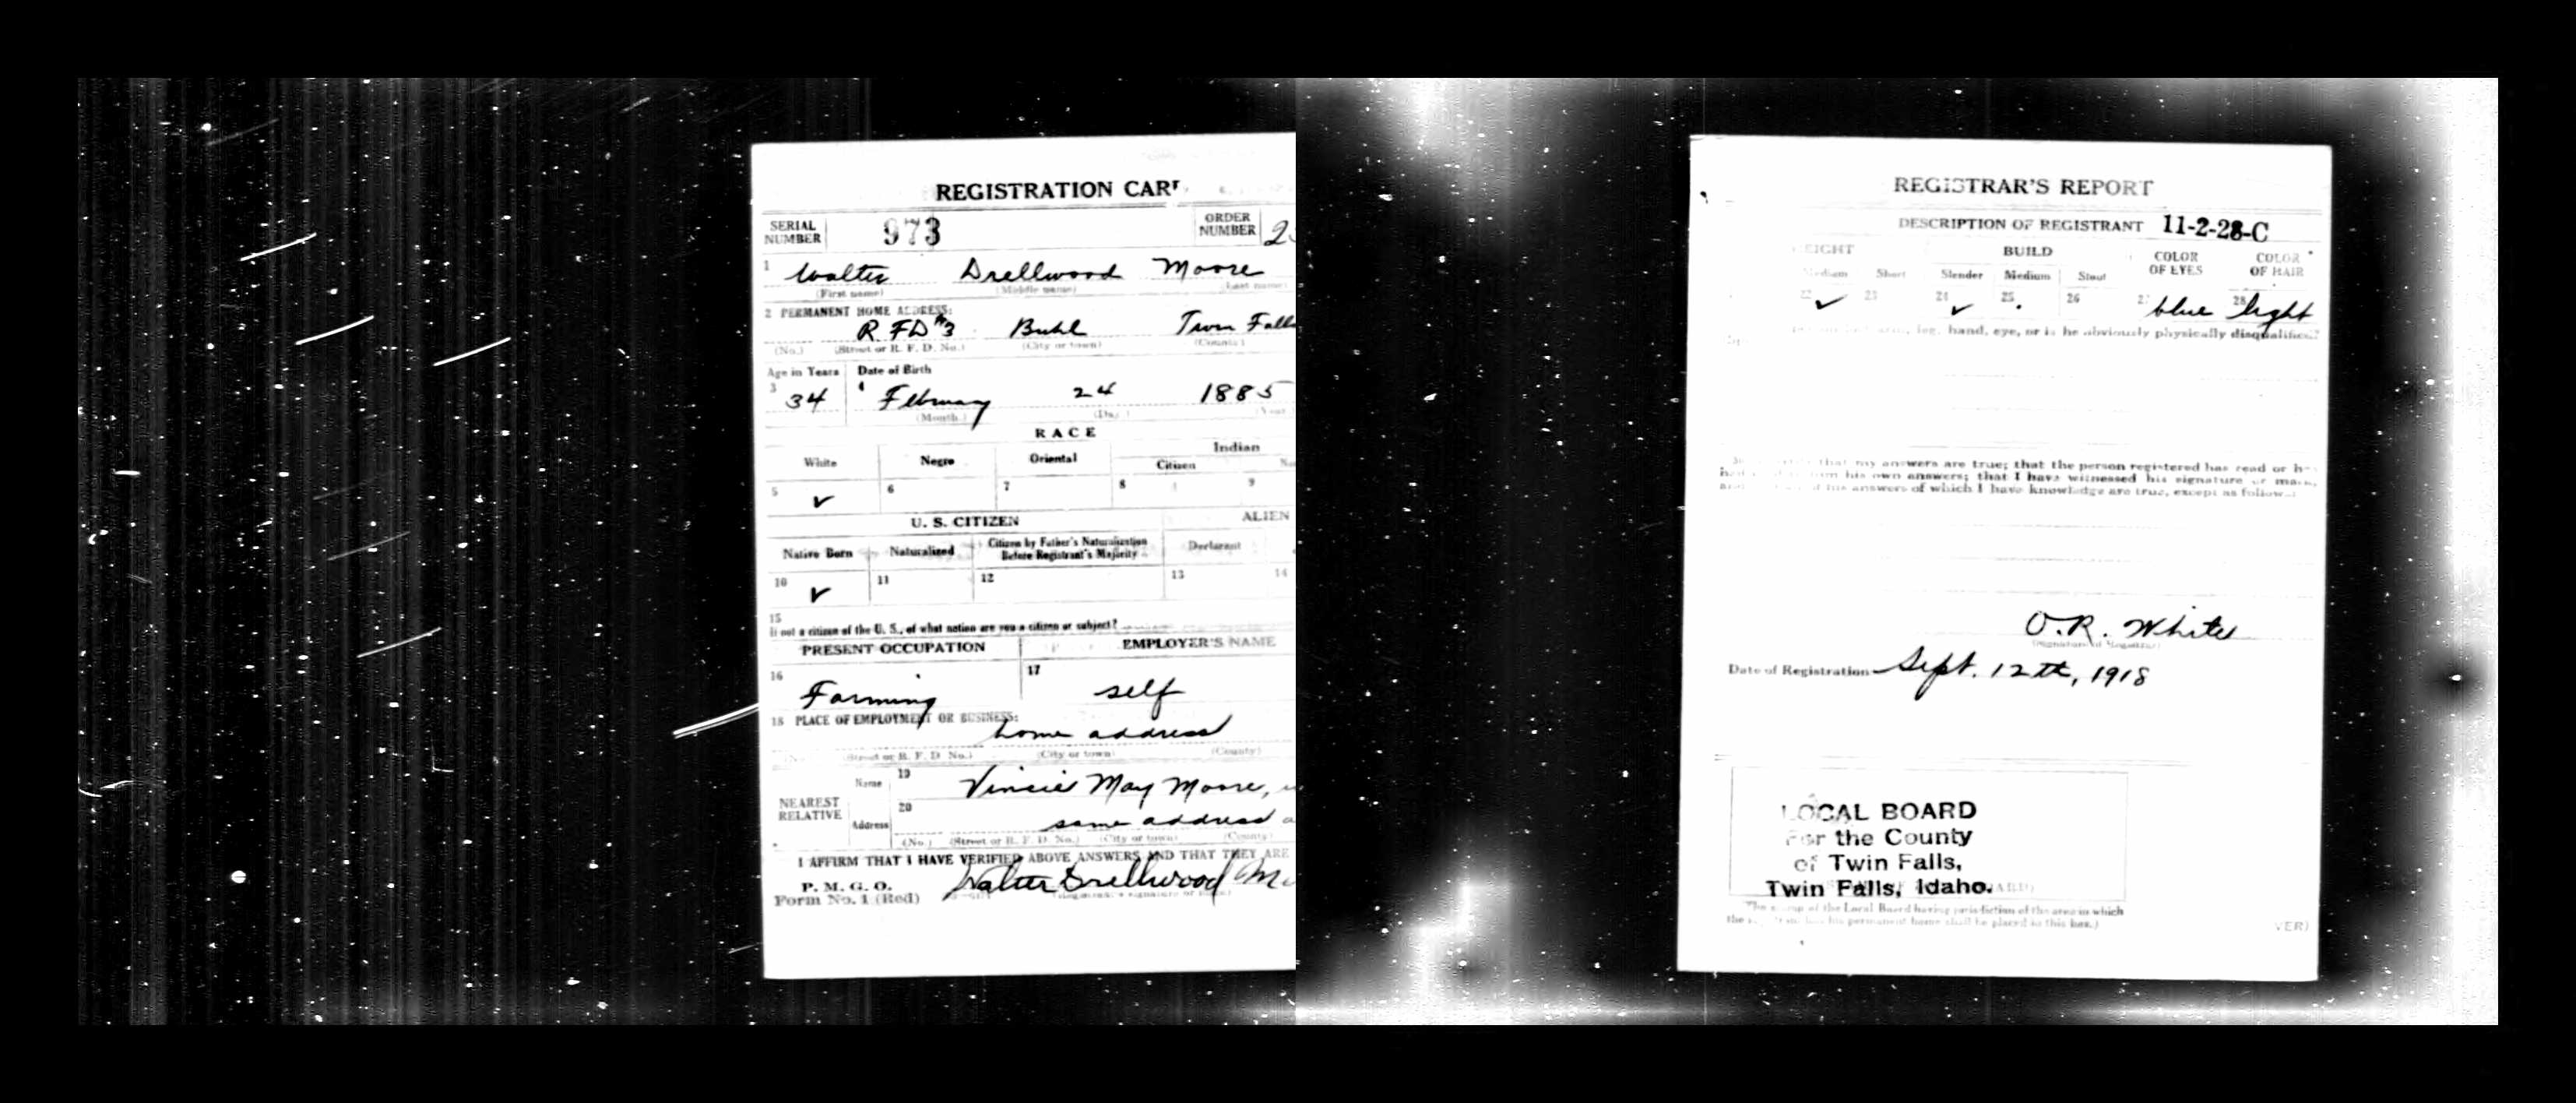 REGISTRATION CAR
SERIAL NUMBER 973 ORDER NUMBER
1 Walter Drellwood Moore
(First name) (Middle name) (Last name)
2 PERMANENT HOME ADDRESS:
R FD #3 Buhl Twin Falls
(No.) (Street or R. F. D. No.) (City or town) (County)
Age in Years Date of Birth
3 34 4 February 24 1885
(Month.) (Day.) (Year
RACE
White Negro Oriental Indian
Citizen
5 ✓ 6 7 8 9
U. S. CITIZEN ALIEN
Native Born Naturalized Citizen by Father's Naturalization Before Registrant's Majority Declarant
10 ✓ 11 12 13 14
15
If not a citizen of the U. S., of what nation are you a citizen or subject?
PRESENT OCCUPATION EMPLOYER'S NAME
16 Farming 17 self
18 PLACE OF EMPLOYMENT OR BUSINESS:
home address
(Street or R. F. D. No.) (City or town) (County)
NEAREST RELATIVE
Name 19 Vincie May Moore,
Address 20 same address
(No.) (Street or R. F. D. No.) (City or town) (County)
I AFFIRM THAT I HAVE VERIFIED ABOVE ANSWERS AND THAT THEY ARE
P. M. G. O.
Form No. 1 (Red) Walter Drellwood
REGISTRAR'S REPORT
DESCRIPTION OF REGISTRANT 11-2-28-C
EIGHT BUILD COLOR OF EYES COLOR OF HAIR
Medium Short Slender Medium Stout
22 ✓ 23 24 ✓ 25 26 27 blue 28 light
leg, hand, eye, or is he obviously physically disqualified?
that my answers are true; that the person registered has read or
his own answers; that I have witnessed his signature or mark,
answers of which I have knowledge are true, except as follows:
O. R. White
Date of Registration Sept. 12th, 1918
LOCAL BOARD
For the County
of Twin Falls,
Twin Falls, Idaho.
of the Local Board having jurisdiction of the area in which
the his permanent home shall be placed in this box.)
VER)